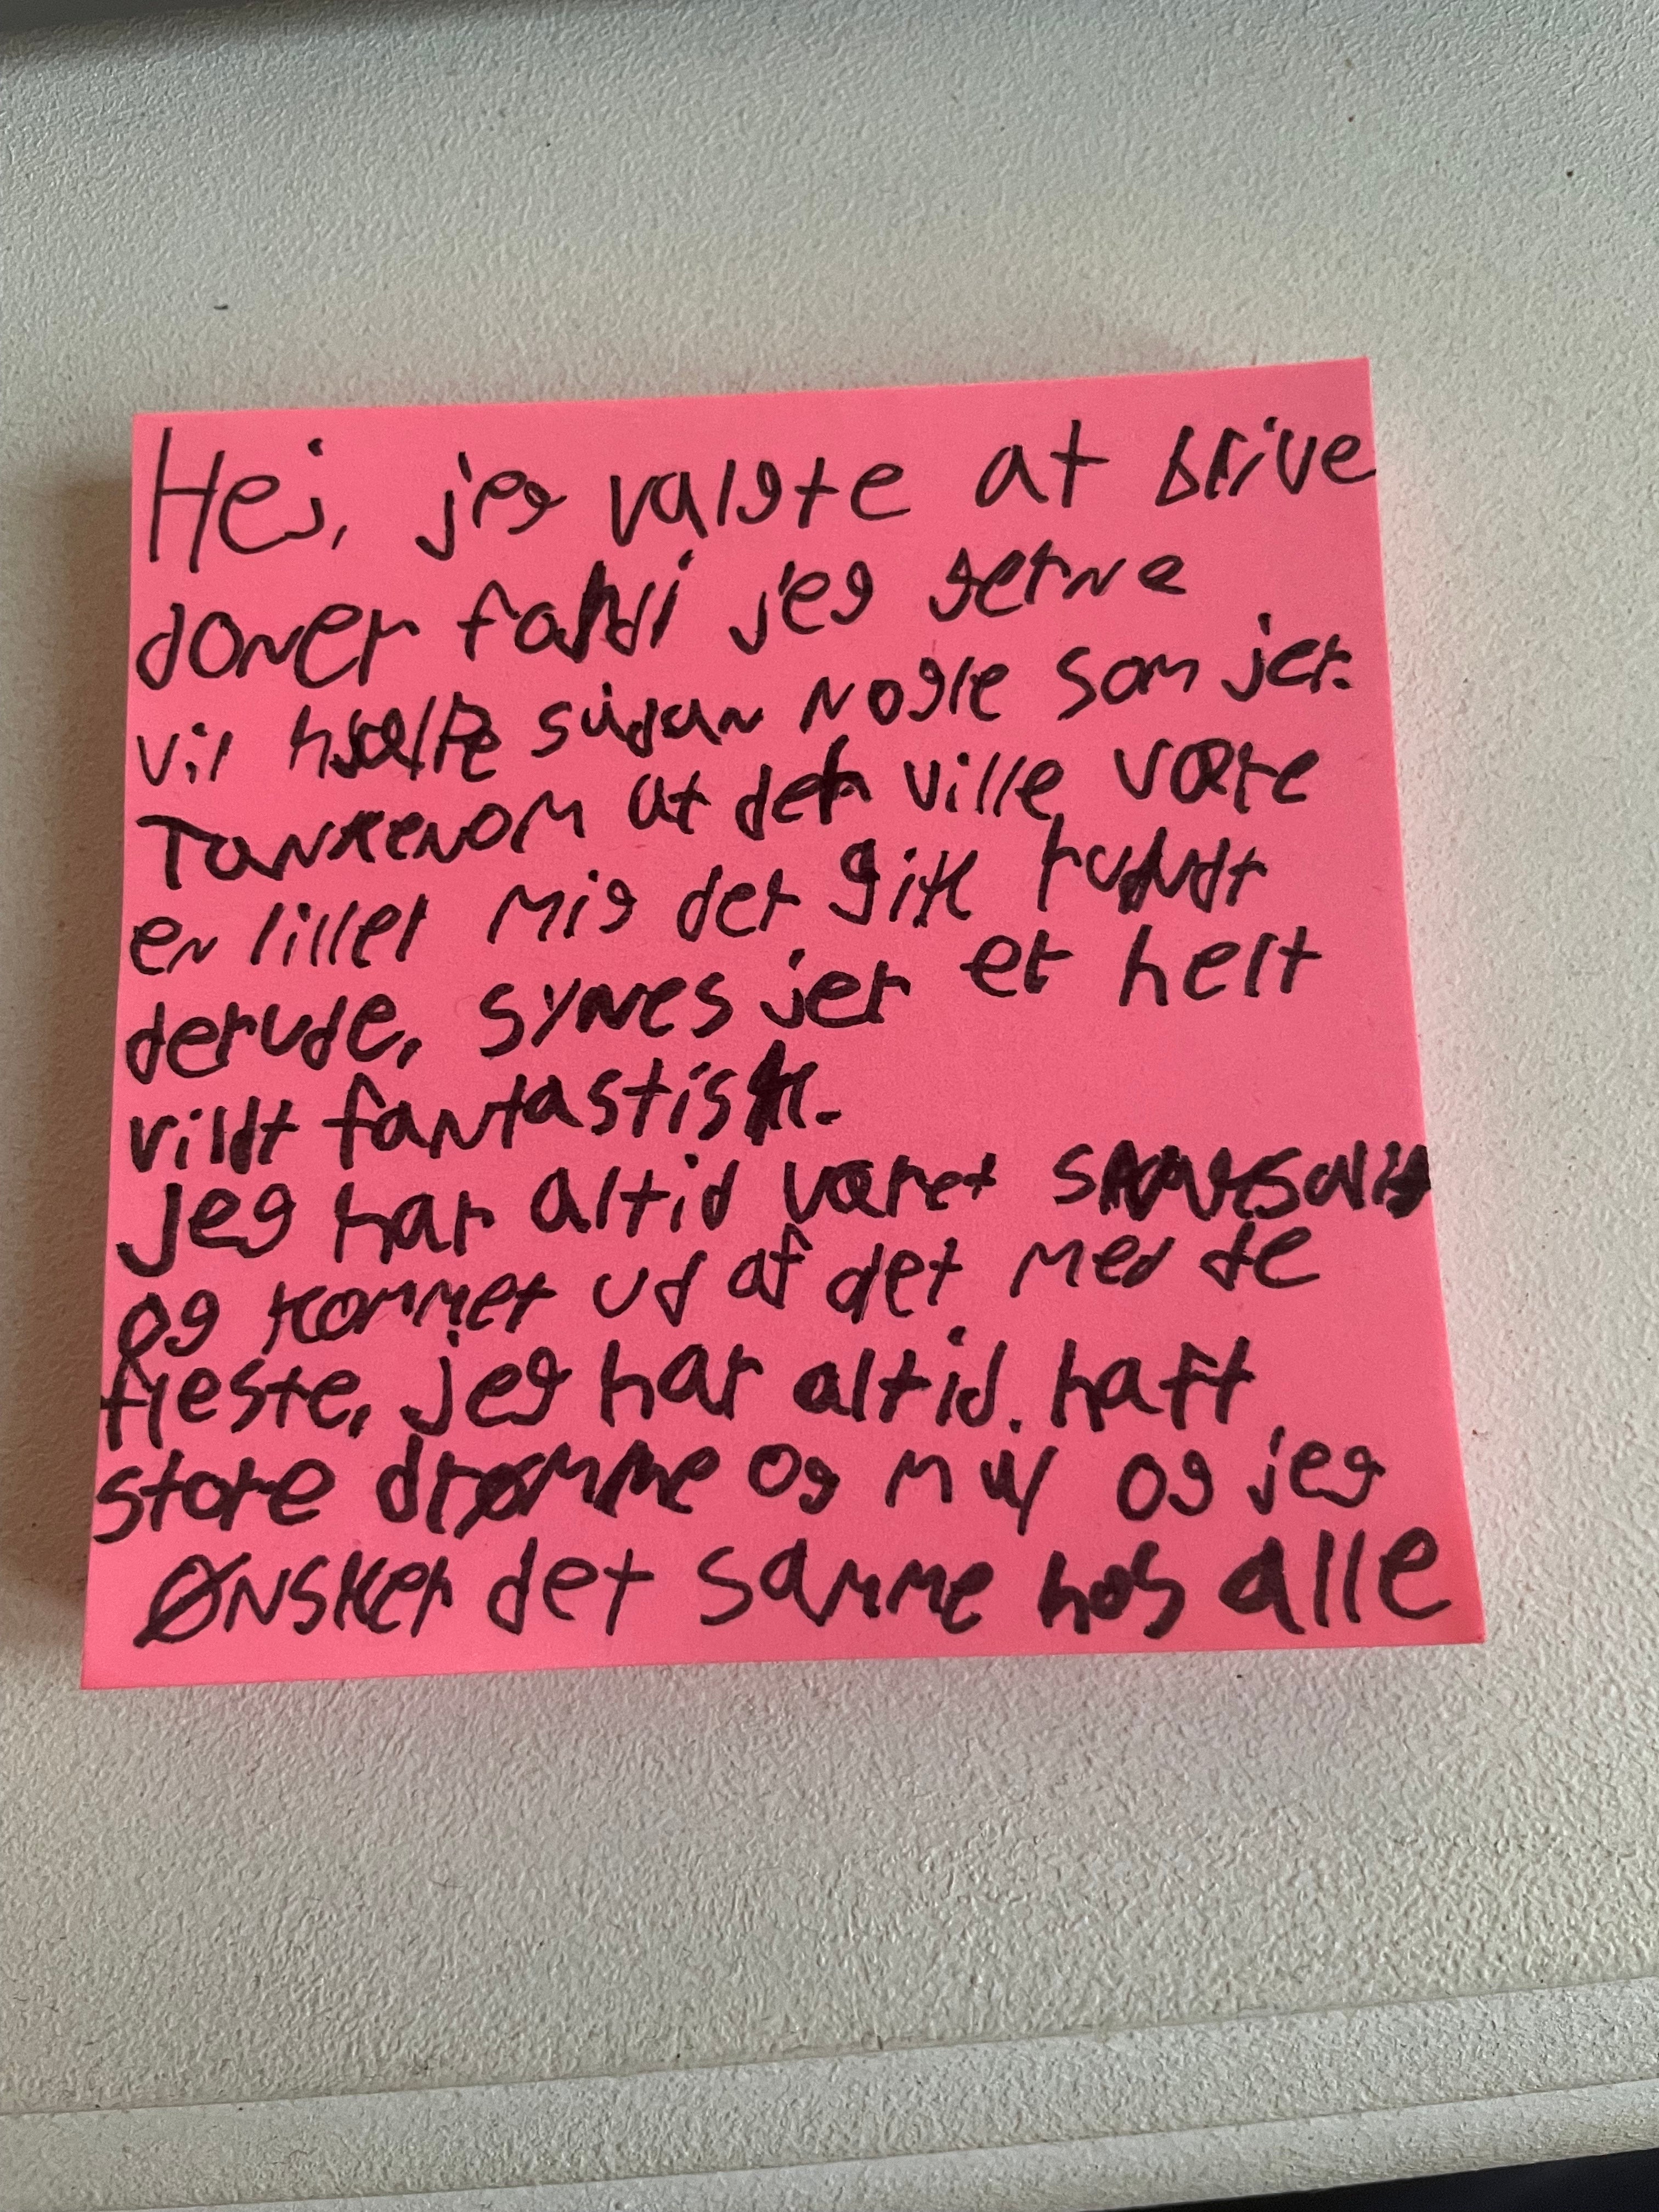 Hej, jeg valgte at blive
doner fordi jeg gerne
vil hjælpe sådan nogle som jer.
Tankenom at det ville være
en lillel mig der gik rundt
derude, synes jer er helt
vildt fantastisk.
Jeg har altid været
og kommet ud af det med de
fleste, jeg har altid haft
store drømme og mål og jeg
Ønsker det samme hos alle